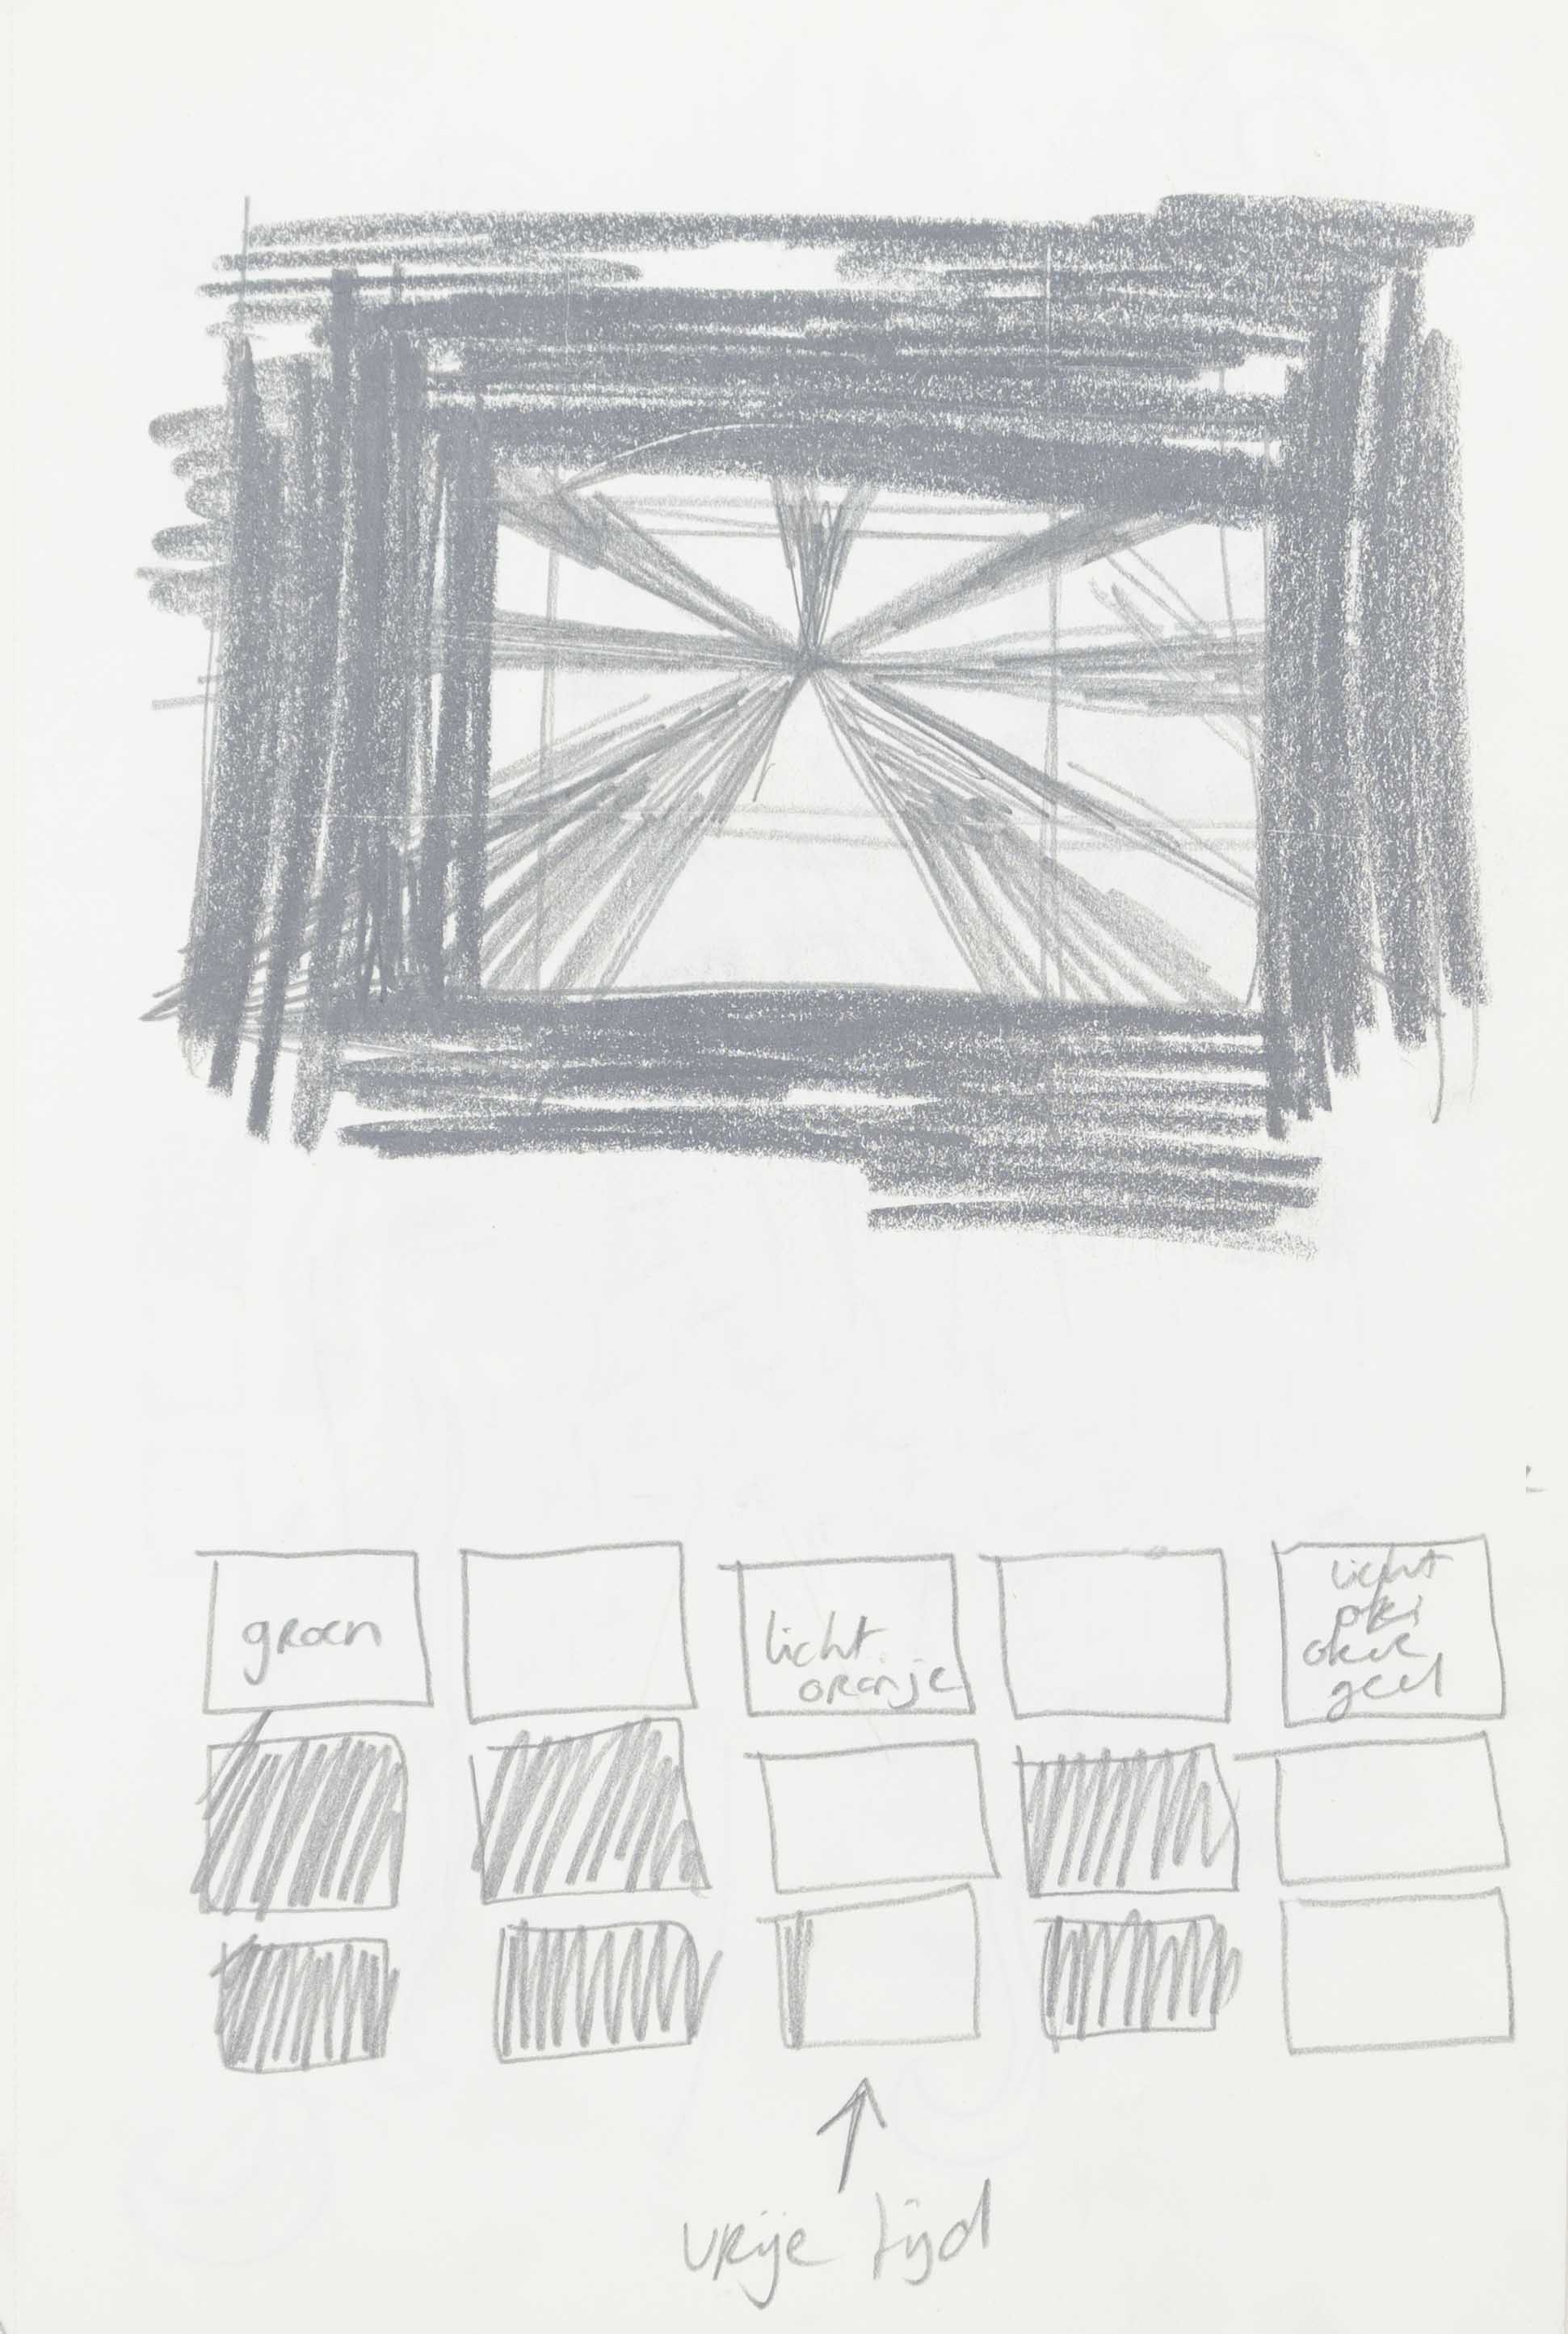 groen
licht
oranje
licht
oker
geel
vrije tijd